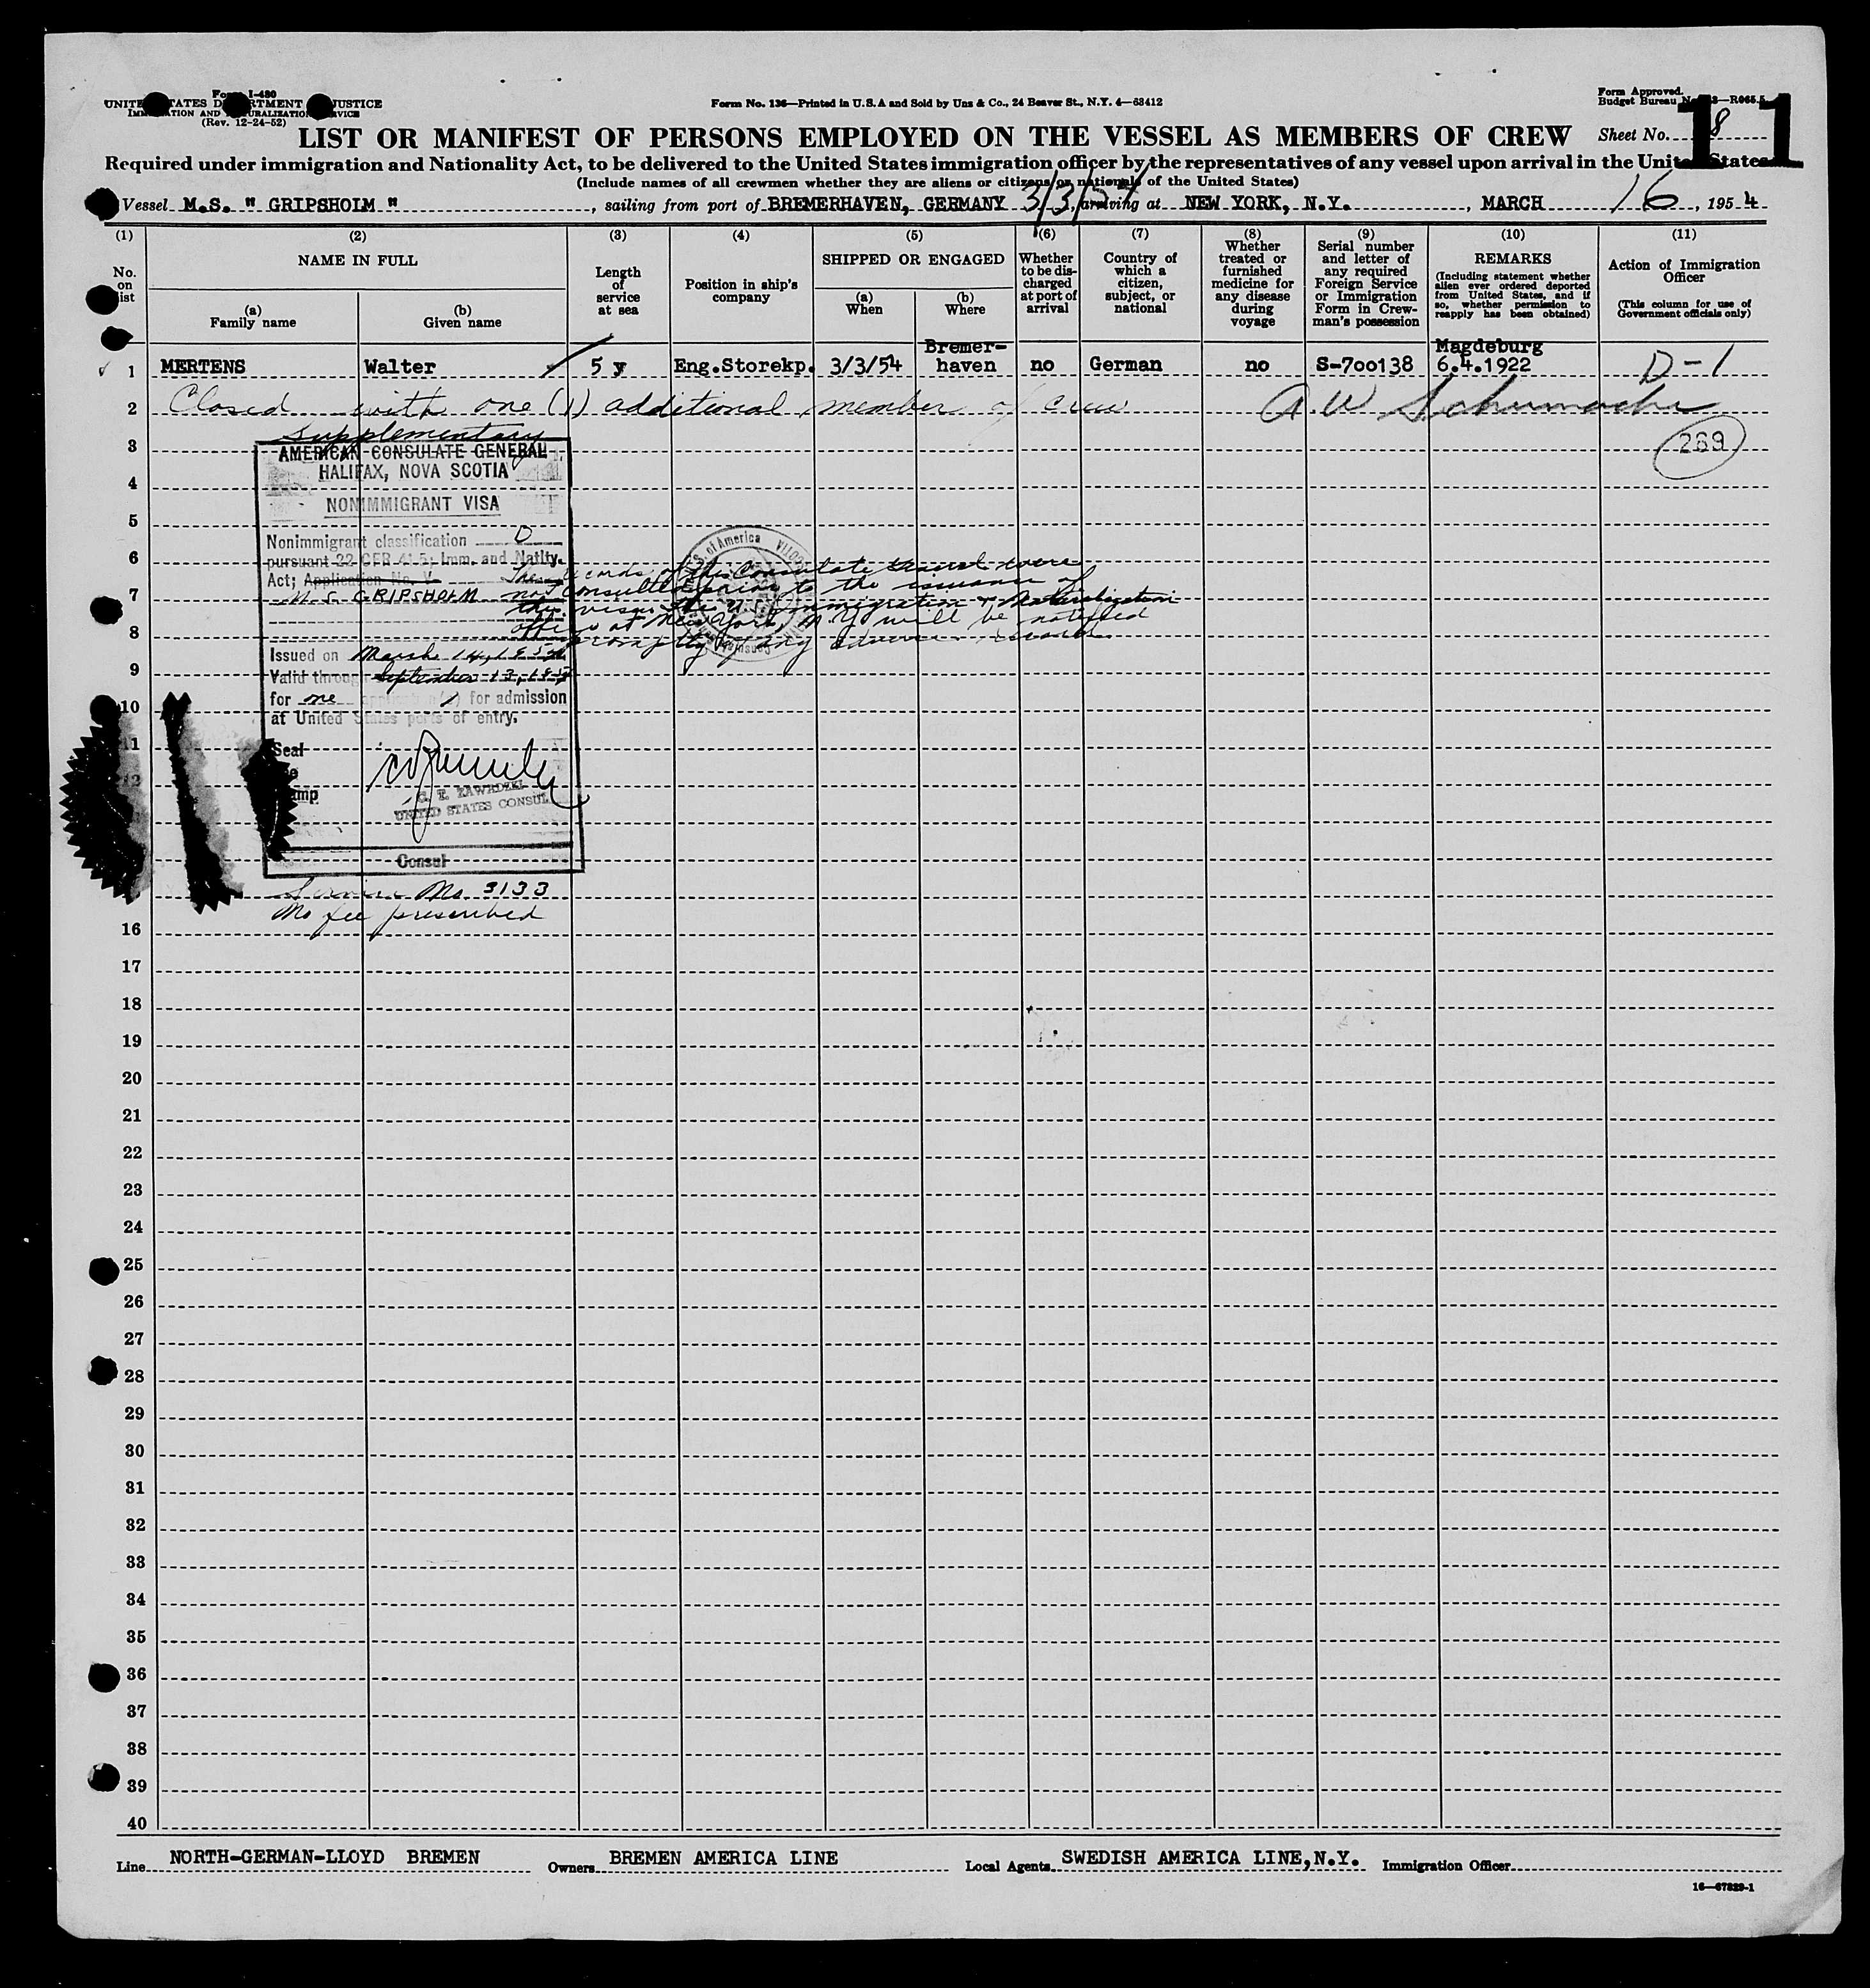 Form I-480
UNITED STATES DEPARTMENT OF JUSTICE
IMMIGRATION AND NATURALIZATION SERVICE
(Rev. 12-24-52)
Form No. 136—Printed in U.S.A and Sold by Unz & Co., 24 Beaver St., N.Y. 4—53412
Form Approved.
Budget Bureau No. 43—R065.5
11
LIST OR MANIFEST OF PERSONS EMPLOYED ON THE VESSEL AS MEMBERS OF CREW
Sheet No. 8
Required under immigration and Nationality Act, to be delivered to the United States immigration officer by the representatives of any vessel upon arrival in the United States
(Include names of all crewmen whether they are aliens or citizens or nationals of the United States)
Vessel M.S. " GRIPSHOLM ", sailing from port of BREMERHAVEN, GERMANY 3/3/54, arriving at NEW YORK, N.Y., MARCH 16, 1954
(1) (2) (3) (4) (5) (6) (7) (8) (9) (10) (11)
No. on list
NAME IN FULL
(a) Family name
(b) Given name
Length of service at sea
Position in ship's company
SHIPPED OR ENGAGED
(a) When
(b) Where
Whether to be discharged at port of arrival
Country of which a citizen, subject, or national
Whether treated or furnished medicine for any disease during voyage
Serial number and letter of any required Foreign Service or Immigration Form in Crewman's possession
REMARKS
(Including statement whether alien ever ordered deported from United States, and if so, whether permission to reapply has been obtained)
Action of Immigration Officer
(This column for use of Government officials only)
1 MERTENS Walter 5 y Eng.Storekp. 3/3/54 Bremerhaven no German no S-700138 Magdeburg 6.4.1922 D-1
2 Closed with one (1) additional member of crew A.W Schumacher
Supplementary
3 269
AMERICAN CONSULATE GENERAL
HALIFAX, NOVA SCOTIA
4
NONIMMIGRANT VISA
5
Nonimmigrant classification D
6
pursuant 22 CFR 41.5; Imm. and Natlty.
Act; Application No. V
M.S. GRIPSHOLM
7
The records of this Consulate General were
not consulted prior to the issuance of
this visa. The U.S. Immigration & Naturalization
office at New York, N.Y. will be notified
promptly of any adverse
8
S. of America
Issued on March 14, 1954
9
Valid through September 13, 1954
for one application(s) for admission
10
at United States ports of entry.
11
Seal
12
C. T. ZAWADZKI
UNITED STATES CONSUL
Consul
Service No. 3133
No fee prescribed
16
17
18
19
20
21
22
23
24
25
26
27
28
29
30
31
32
33
34
35
36
37
38
39
40
Line NORTH-GERMAN-LLOYD BREMEN Owners BREMEN AMERICA LINE Local Agents SWEDISH AMERICA LINE,N.Y. Immigration Officer
16—67829-1